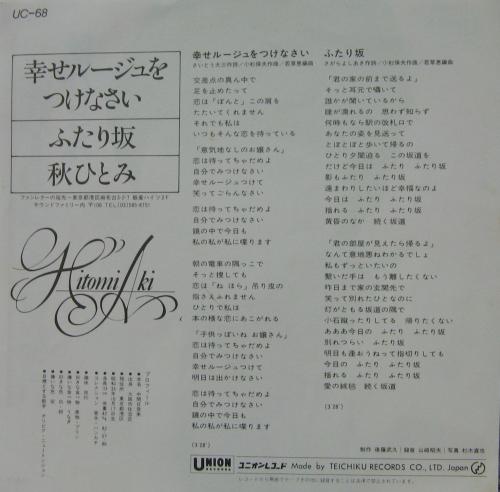 UC-68
幸せルージュを
つけなさい
ふたり坂
秋ひとみ
Hitomi Aki
幸せルージュをつけなさい
交差点の真ん中で
足を止めたって
恋は「ぽんと」この肩を
たたいてくれません
それでも私は
いつもそんな恋を待っている
「意気地なしのお嬢さん」
恋は待ってちゃだめよ
自分でみつけなさい
幸せルージュつけて
笑ってごらんなさい
恋は待ってちゃだめよ
自分でみつけなさい
鏡の中で今日も
私の私が私に喋ります
朝の電車の隅っこで
そっと捜しても
恋は「ね ほら」吊り皮の
指さえふれません
ひとりで私は
本の様な恋にあこがれる
「子供っぽいね お嬢さん」
恋は待ってちゃだめよ
自分でみつけなさい
幸せルージュつけて
明日は出かけなさい
恋は待ってちゃだめよ
自分でみつけなさい
鏡の中で今日も
私の私が私に喋ります
(3'28")
ふたり坂
「君の家の前まで送るよ」
そっと耳元で囁いて
誰かが聞いているから
瞳が濡れるの 思わず知らず
何時もなら駅の改札口で
あなたの姿を見送って
とぼとぼと歩いて帰るの
ひとり夕闇迫る この坂道を
だけど今日は ふたり ふたり坂
影もふたり ふたり坂
遠まわりしたいほど幸福なのよ
今日は ふたり ふたり坂
揺れる ふたり ふたり坂
黄昏のなか 続く坂道
「君の部屋が見えたら帰るよ」
なんて意地悪ねわかるでしょ
私もずっといたいの
繫いだ手は もう離したくない
昨日まで家の玄関先で
笑って別れたひとなのに
灯がともる坂道の隅で
小石蹴ったりしてる 帰りたくない
あああ今日の ふたり ふたり坂
別れつらい ふたり坂
明日も逢おうねって指切りしても
今日の ふたり ふたり坂
揺れる ふたり ふたり坂
愛の絨毯 続く坂道
(3'28")
プロフィール
UNION RECORDS
ユニオンレコード Made by TEICHIKU RECORDS CO., LTD. Japan